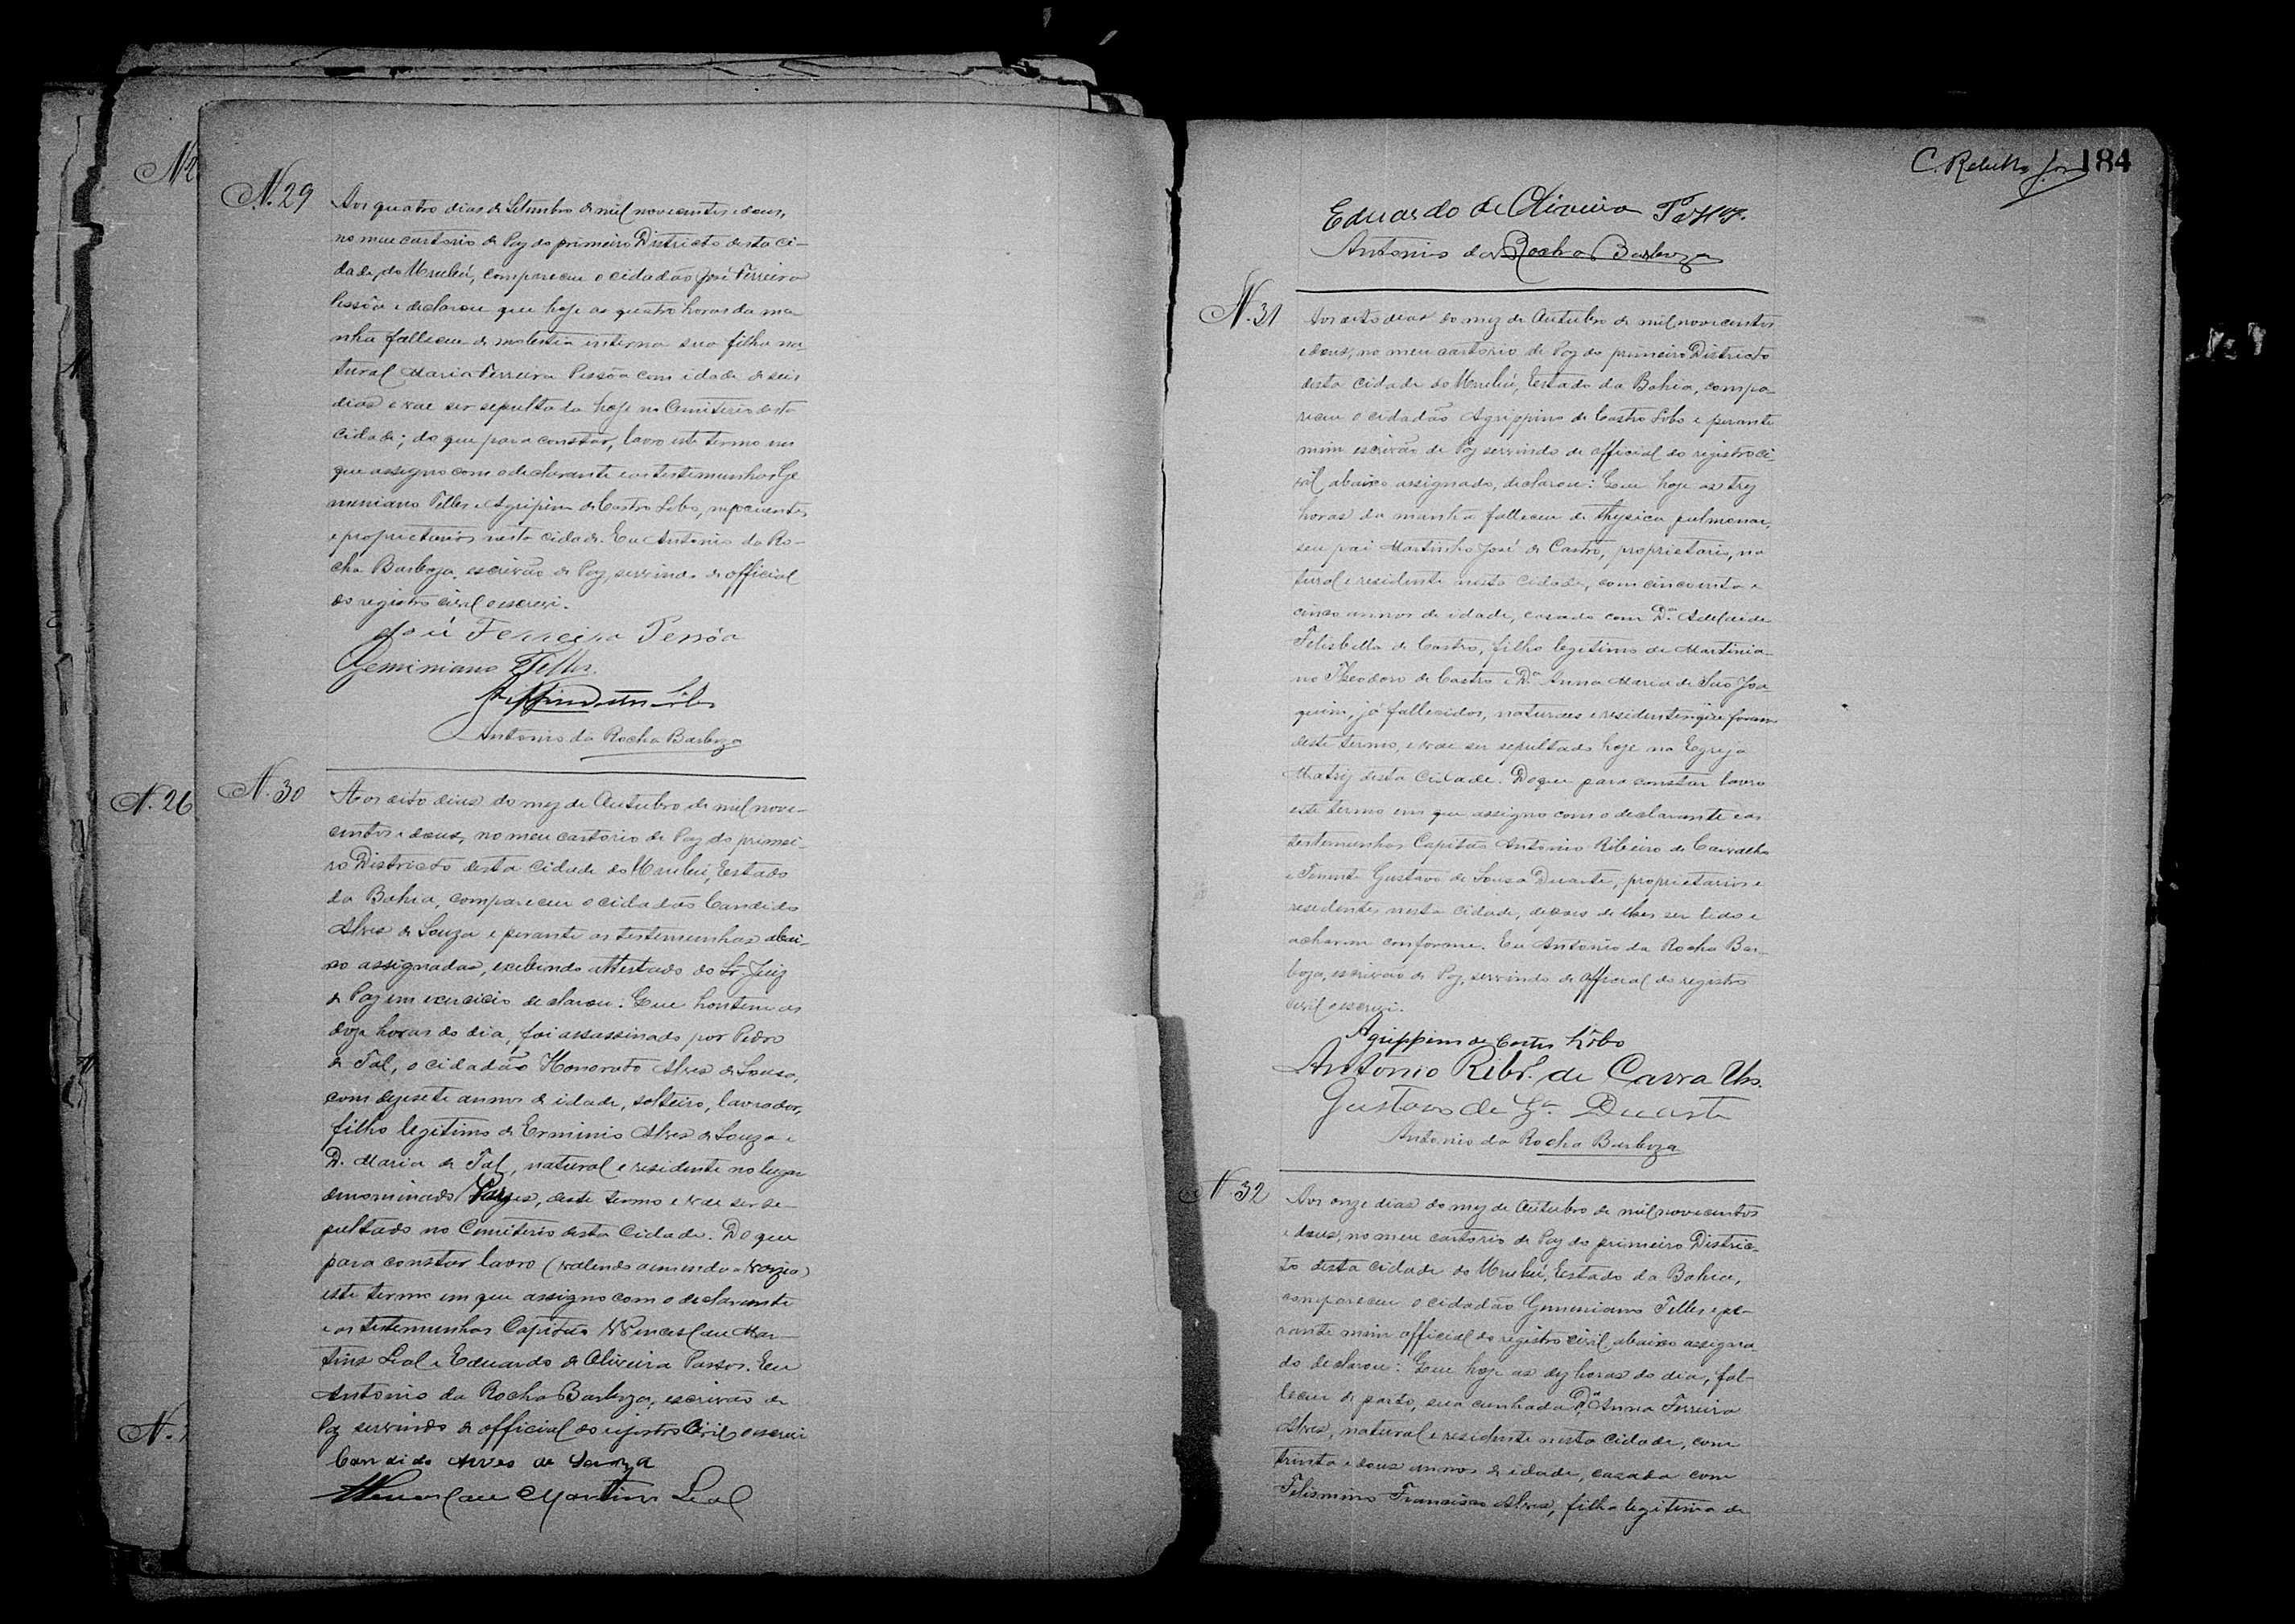 N. 29
Aos quatro dias de Setembro de mil novecentos e dous,
no meu cartorio de Paz do primeiro Districto desta ci-
dade, do Urubú, compareceu o cidadão José Ferreira
Pessôa e declarou que hoje as quatro horas da ma
nhã falleceu de molestia interna sua filha na-
tural Maria Ferreira Pessôa com idade de seis
dias e vae ser sepultada hoje no Cemiterio desta
cidade; do que para constar, lavro este termo em
que assigno com o declarante e as testemunhas Ge
miniano Telles e Agripino de Castro Lobo, negociantes
e proprietarios nesta cidade. Eu Antonio da Ro-
cha Barboza, escrivão de Paz, servindo de official
do registro civil o escrevi.
José Ferreira Pessôa
Geminiano Telles.
Antonio da Rocha Barboza
N. 30
Aos oito dias do mez de Outubro de mil nove-
centos e dous, no meu cartorio de Paz do primei-
ro Districto desta cidade do Urubú, Estado
da Bahia, compareceu o cidadão Candido
Alves de Souza e perante as testemunhas abai-
xo assignadas, exebindo attestado do Sr. Juiz
de Paz em exercicio declarou: Que hontem as
doze horas do dia, foi assassinado por Pedro
de Tal, o cidadão Honorato Alves de Sousa,
com dezesete annos de idade, solteiro, lavrador,
filho legitimo de Erminio Alves de Souza e
D. Maria de Tal, natural e residente no lugar
denominado deste termo e vae ser se-
pultado no Cemiterio desta Cidade. Do que
para constar lavro (valendo a emenda
este termo em que assigno com o declarante
e as testemunhas Capitão Wenceslau Mar-
tins Leal e Eduardo de Oliveira Passos. Eu
Antonio da Rocha Barboza, escrivão de
Paz servindo de official do registro Civil o escrevi
Candido Alves de Souza
Wenceslau Martins Leal
N. 26
184
Eduardo de Oliveira Passos.
Antonio da Rocha Barboza
N. 31
Aos oito dias do mez de Outubro de mil novecentos
e dous, no meu cartorio de Paz do primeiro Districto
desta cidade do Urubú, Estado da Bahia, compa-
receu o cidadão Agrippino de Castro Lobo e perante
mim escrivão de Paz servindo de official do registro ci-
vil abaixo assignado, declarou: Que hoje as trez
horas da manhã falleceu de thysica pulmonar,
seu pai Martinho José de Castro, proprietario, na
tural e residente nesta cidade, com cincoenta e
cinco annos de idade, casado com Dª Adelaide
Felisbella de Castro, filho legitimo de Martinia-
no Theodoro de Castro e Dª Anna Maria de São Joa
quim, já fallecidos, naturaes e residentes que foram
deste termo, e vae ser sepultado hoje na Egreja
Matriz desta Cidade. Do que para constar lavro
este termo em que assigno com o declarante e as
testemunhas Capitão Antonio Ribeiro de Carvalho
e Tenente Gustavo de Sousa Duarte, proprietarios e
residentes nesta cidade, depois de lhes ser lido e
acharem conforme. Eu Antonio da Rocha Bar-
boza, escrivão de Paz, servindo de official do registro
civil o escrevi.
Agrippino de Castro Lôbo
Antonio Ribr. de Carvalho.
Gustavo de Sza. Duarte
Antonio da Rocha Barboza
N. 32
Aos onze dias do mez de Outubro de mil novecentos
e dous, no meu cartorio de Paz do primeiro Distric-
to desta cidade do Urubú, Estado da Bahia,
compareceu o cidadão Geminiano Telles e pe-
rante mim official do registro civil abaixo assigna-
do declarou: Que hoje as dez horas do dia, fal-
leceu de parto, sua cunhada Dª Anna Ferreira
Alves, natural e residente nesta cidade, com
trinta e dous annos de idade, casada com
Felismino Francisco Alves, filha legitima de